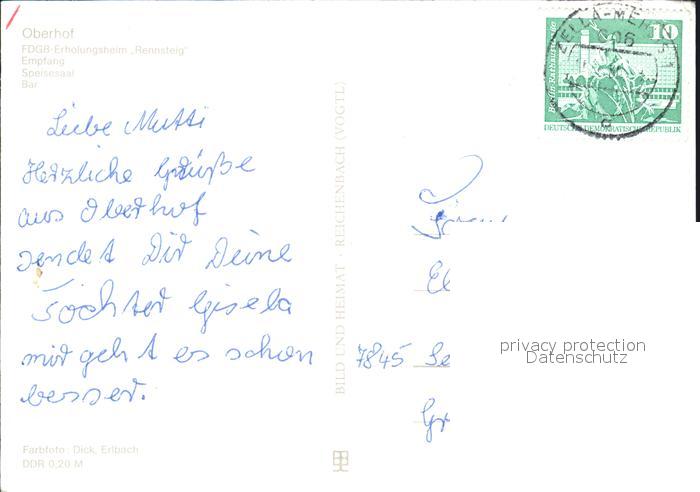 Oberhof
FDGB-Erholungsheim „Rennsteig“
Empfang
Speisesaal
Bar
Liebe Mutti
Herzliche Grüße
aus Oberhof
sendet Dir Deine
Tochter Gisela
mir geht es schon
besser.
Farbfoto: Dick, Erlbach
DDR 0,20 M
BILD UND HEIMAT · REICHENBACH (VOGTL)
10
Berlin-Rathausstraße
DEUTSCHE DEMOKRATISCHE REPUBLIK
606
c
El
7845 Se
Gr
privacy protection
Datenschutz